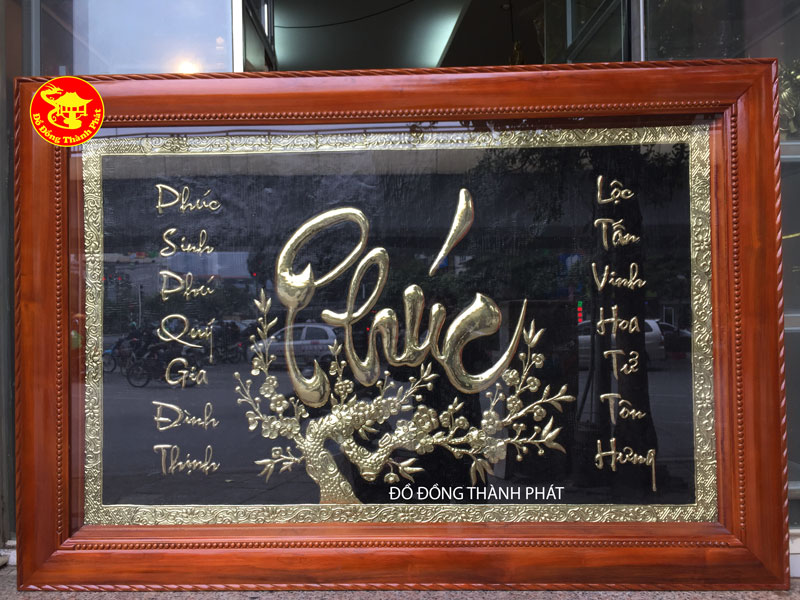 Đồ Đồng Thành Phát
Phúc
Sinh
Phú
Quý
Gia
Đình
Thịnh
Phúc
Lộc
Tấn
Vinh
Hoa
Tử
Tôn
Hưng
ĐỒ ĐỒNG THÀNH PHÁT